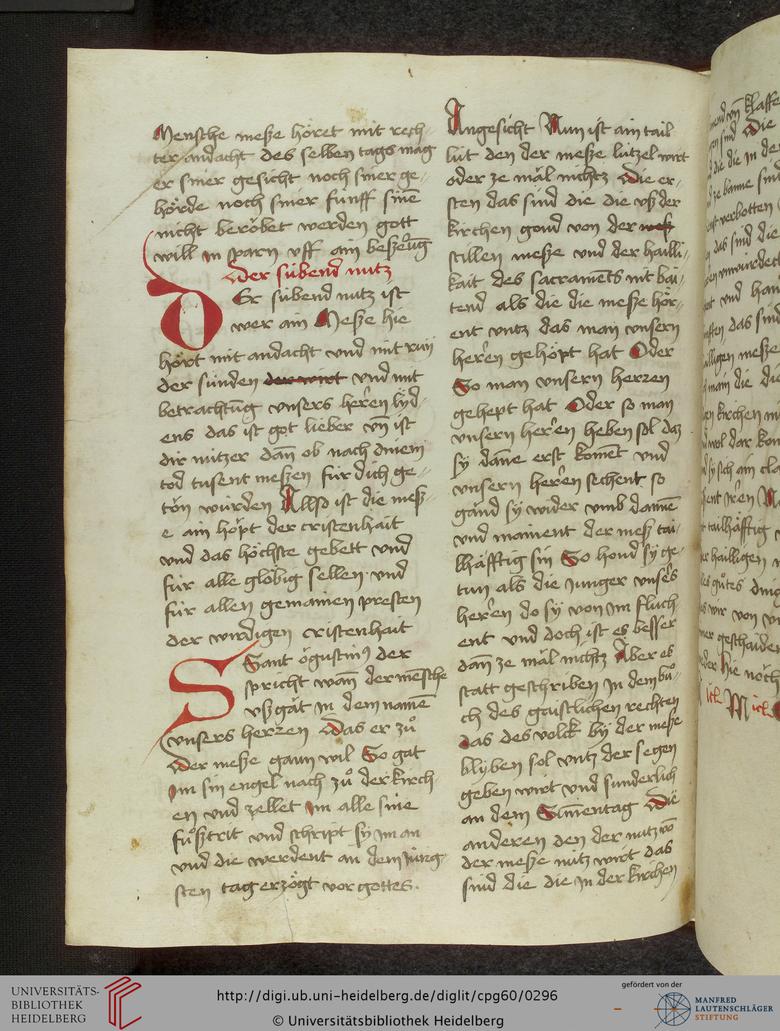 Mensche mesße höret mit rech-
ter andacht des selben tags mag
er siner gesicht noch siner ge-
hörde noch siner funff sinē
nicht beröbet werden gott
will in sparn vff ain besserūg
Der sübend nutz
DEr sübend nutz ist
wer ain Messe hie
hört mit andacht vnd mit ruw
der sünden der wirt vnd mit
betrachtūg vnsers herēn lyd-
ens das ist got lieber vn̄ ist
dir nützer dan̄ ob nach dinem
tod tusent messen für dich ge-
tön würden Allso ist die mess-
e ain höpt der cristenhait
vnd das höchste gebett vnd
für alle glöbig sellen vnd
für allen gemainen presten
der wirdigen cristenhait
SSant ögustin9 der
spricht wan̄ der mēsche
vsz gat in dem namē
vnsers herzen Das er zů
Der messe gann wil So gat
Im sin engel nach zů der kirch-
en vnd zellet Im alle sine
fůsztrit vnd schript sy im an
vnd die werdent an dem iüng-
sten tag erzögt vor gottes
Angesicht Nun ist ain tail
lüt den der messe lützel wirt
oder ze mäl nichtz Die er-
sten das sind die die vsz der
kirchen gond von der mesß
stillen messe vnd der hailli-
kait des sacramēts nit bai-
tend als die die messe hör-
ent vntz das man vnsern
herēn gehöpt hat Oder
So man vnsern herzen
gehept hat Oder so man
vnsern herēn heben sol daz
sy dāne erst komēt vnd
vnsern herēn sechent so
gand sy wider vmb dannē
vnd mainent der mess tai-
lhäfftig sin So hond sy ge-
tun als die Junger vnsēs
herēn do sy von im fluch-
ent vnd doch ist es besser
dan̄ ze mäl nichtz Aber es
statt geschriben in dem bů-
ch des gaistlichen rechten
das des volck by der messe
blyben sol vntz der segen
geben wirt vnd sunderlich
an dem Sunnentag Die
anderen den der nutz vō
der messe nütz wirt das
sind die die in der kirchen
UNIVERSITÄTS-
BIBLIOTHEK
HEIDELBERG
http://digi.ub.uni-heidelberg.de/diglit/cpg60/0296
© Universitätsbibliothek Heidelberg
gefördert von der
MANFRED
LAUTENSCHLÄGER
STIFTUNG